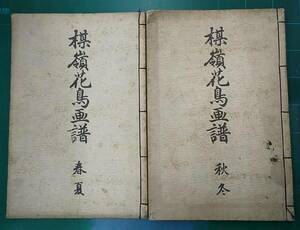 楳嶺花鳥画譜
春夏
楳嶺花鳥画譜
秋冬